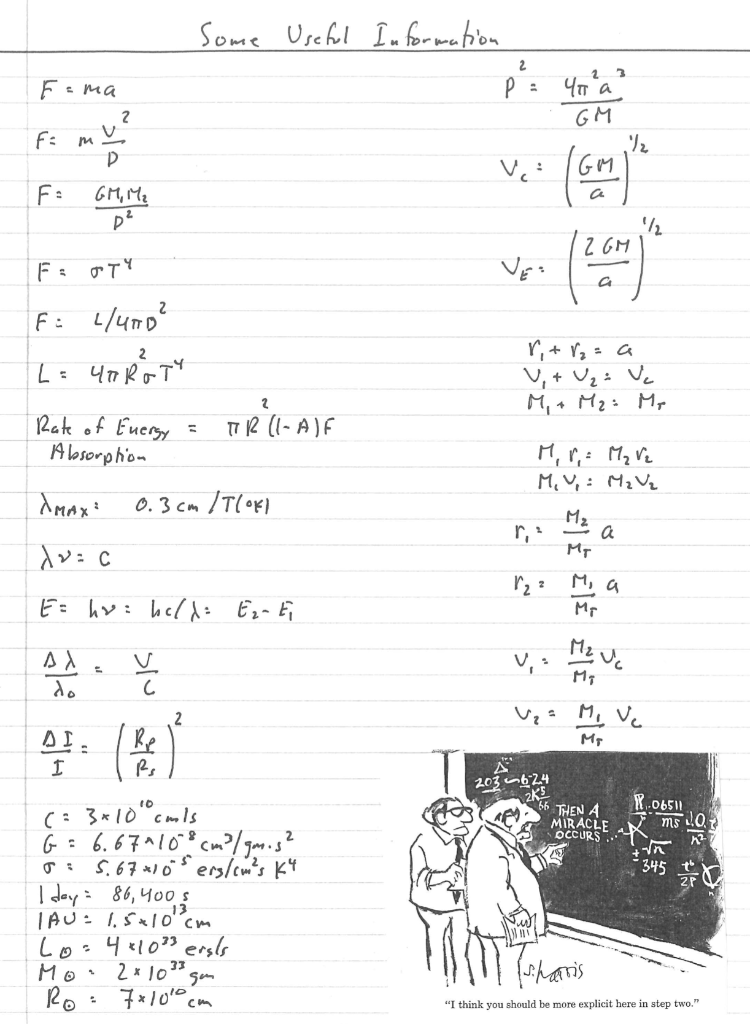 Some Useful Information
F = ma
F = m V²/D
F = GM₁M₂/D²
F = σT⁴
F = L/4πD²
L = 4πR²σT⁴
Rate of Energy = πR²(1-A)F
Absorption
λMAX = 0.3 cm/T(°K)
λν = C
E = hν = hc/λ = E₂ - E₁
Δλ/λ₀ = V/C
ΔI/I = (Rp/Rs)²
C = 3×10¹⁰ cm/s
G = 6.67×10⁻⁸ cm³/gm·s²
σ = 5.67×10⁻⁵ ergs/cm²s K⁴
1 day = 86,400 s
1AU = 1.5×10¹³ cm
L⊙ = 4×10³³ ergs/s
M⊙ = 2×10³³ gm
R⊙ = 7×10¹⁰ cm
P² = 4π²a³/GM
Vc = (GM/a)^1/2
VE = (2GM/a)^1/2
r₁ + r₂ = a
V₁ + V₂ = Vc
M₁ + M₂ = MT
M₁r₁ = M₂r₂
M₁V₁ = M₂V₂
r₁ = M₂/MT a
r₂ = M₁/MT a
V₁ = M₂/MT Vc
V₂ = M₁/MT Vc
THEN A
MIRACLE
OCCURS...
.06511
ms
√n
345
S. Harris
"I think you should be more explicit here in step two."